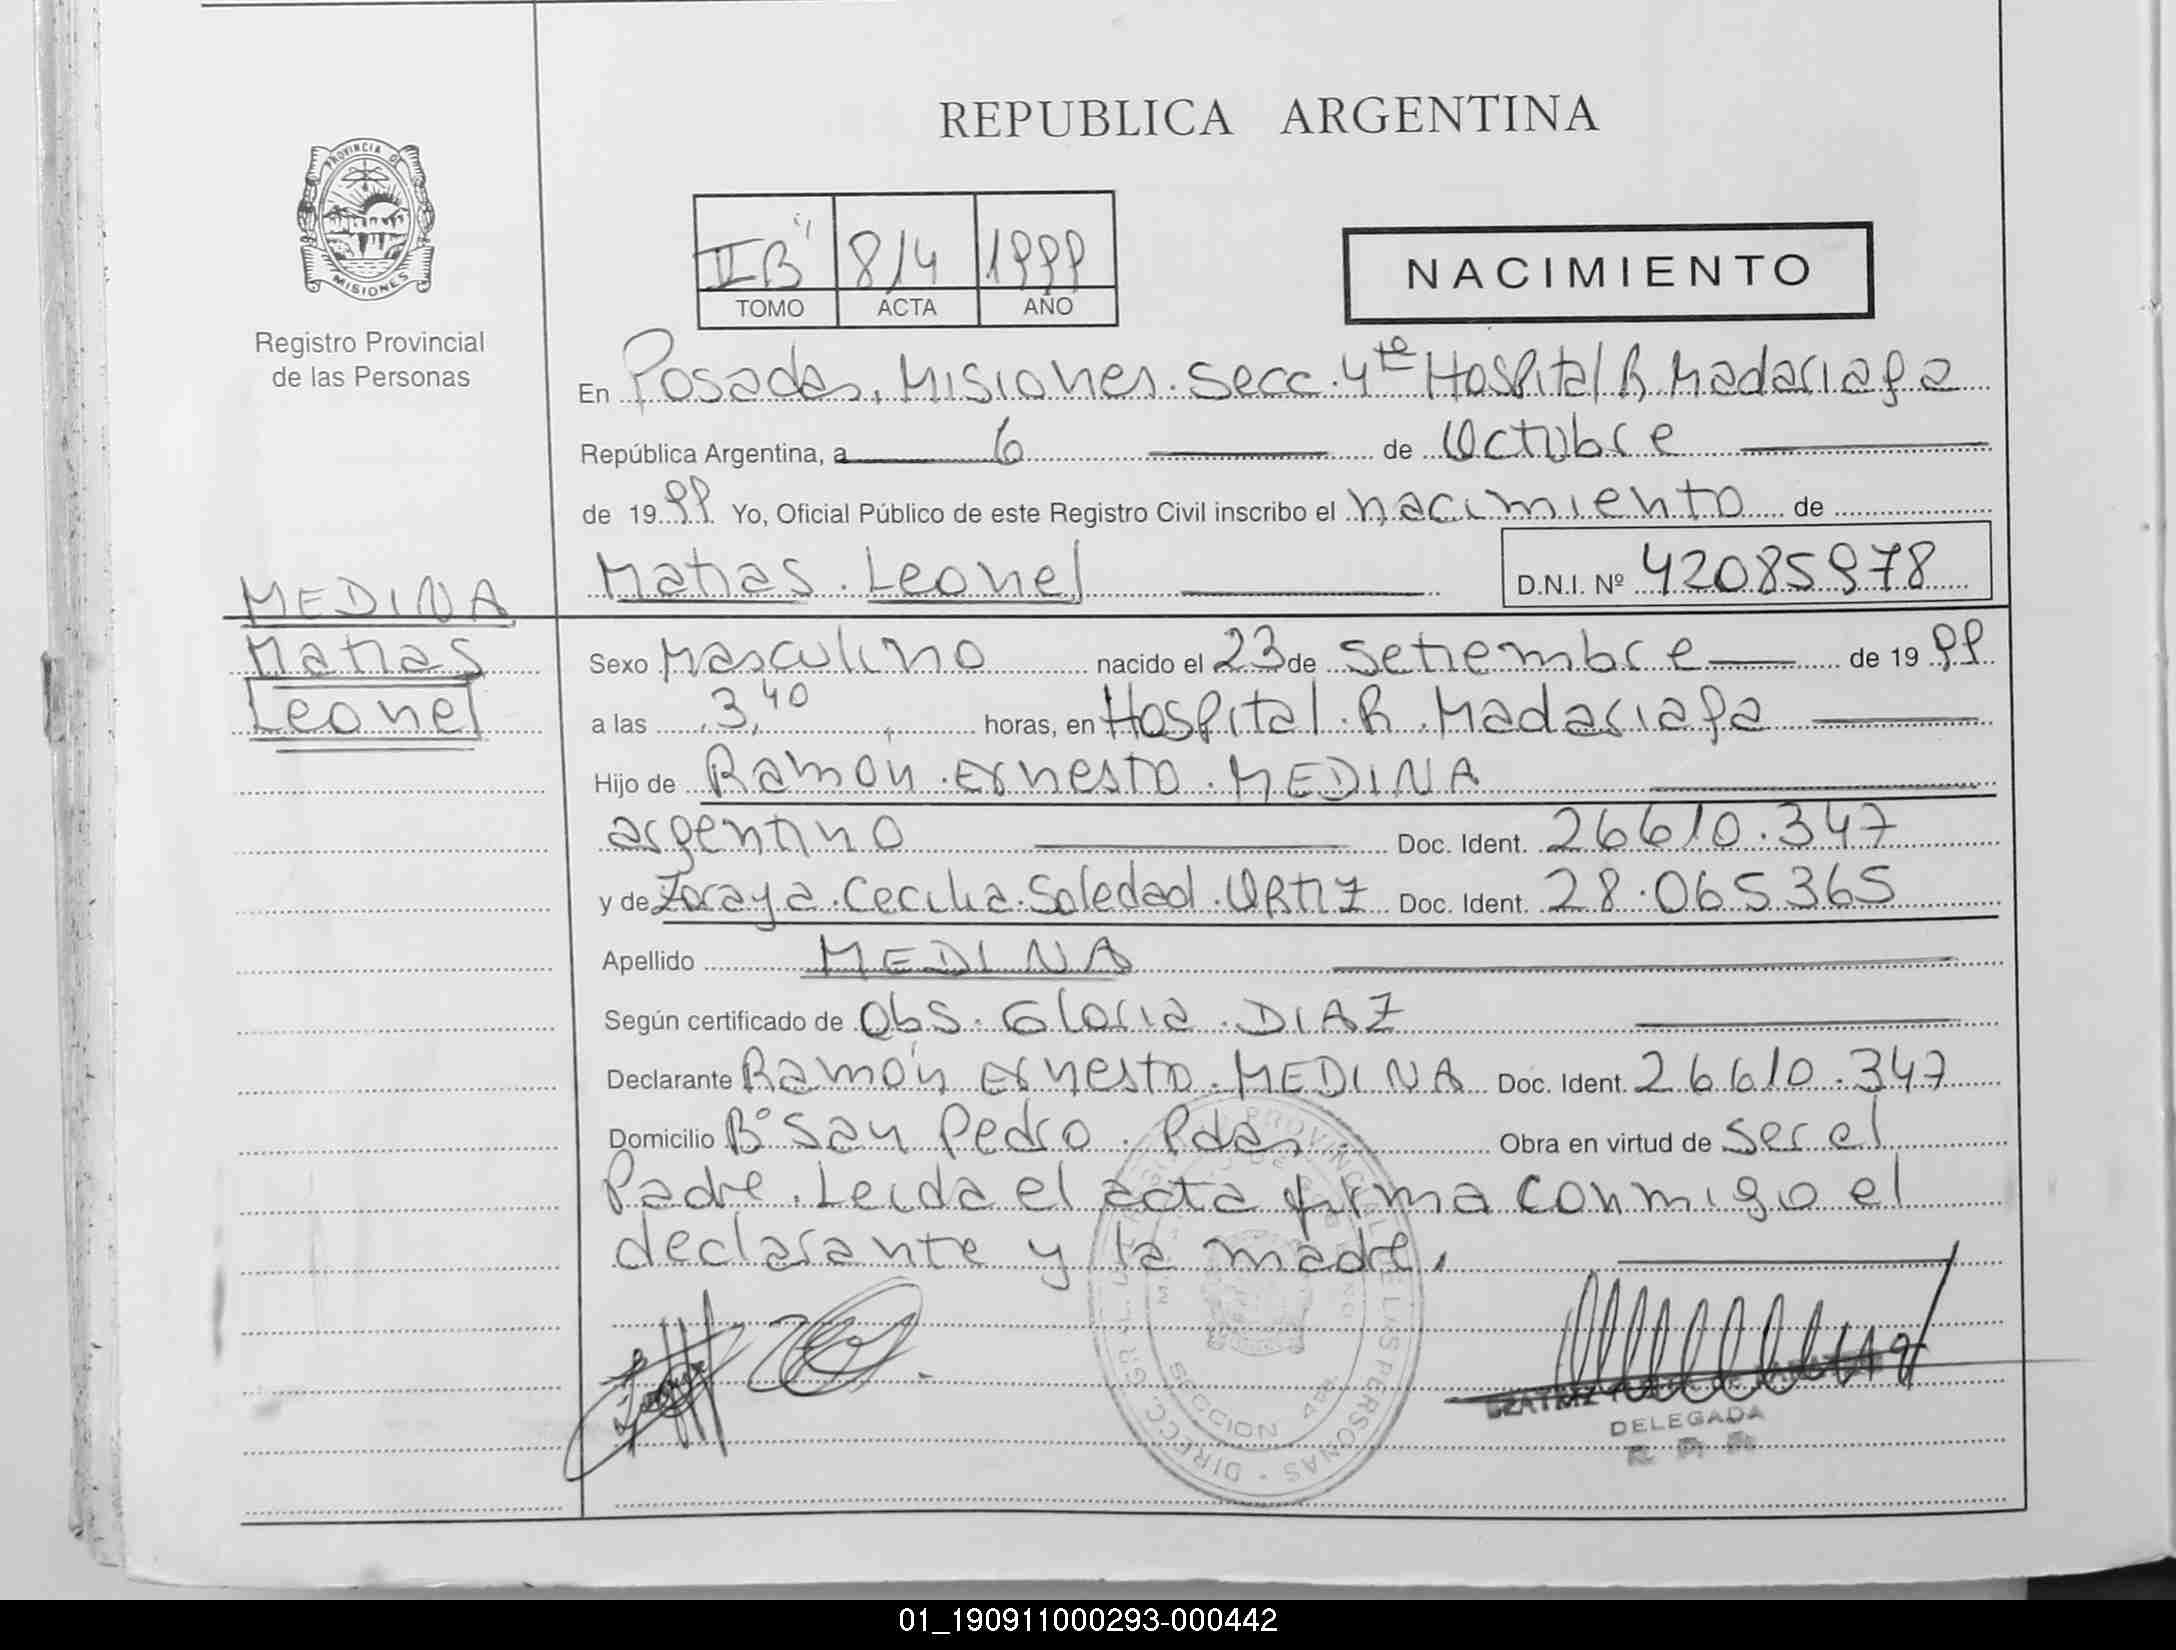 REPUBLICA ARGENTINA
PROVINCIA DE
MISIONES
Registro Provincial
de las Personas
II "B" 814 1999
TOMO ACTA AÑO
NACIMIENTO
En Posadas, Misiones. Secc. 4ta Hospital R. Madariaga
República Argentina, a 6 de Octubre
de 1999 Yo, Oficial Público de este Registro Civil inscribo el nacimiento de
Matias. Leonel D.N.I. Nº 42085978
MEDINA
Matias
Leonel
Sexo Masculino nacido el 23 de Setiembre de 1999
a las 3,40 horas, en Hospital. R. Madariaga
Hijo de Ramón. Ernesto. MEDINA
argentino Doc. Ident. 26610.347
y de Zoraya. Cecilia. Soledad. ORTIZ Doc. Ident. 28.065365
Apellido MEDINA
Según certificado de Obs. Gloria. DIAZ
Declarante Ramón Ernesto. MEDINA Doc. Ident. 26610.347
Domicilio Bº San Pedro. Pdas, Obra en virtud de ser el
Padre. Leida el acta firma conmigo el
declarante y la madre.
PROVINCIAL DE LAS PERSONAS
SECCION 4ta
BEATRIZ
DELEGADA
01_190911000293-000442